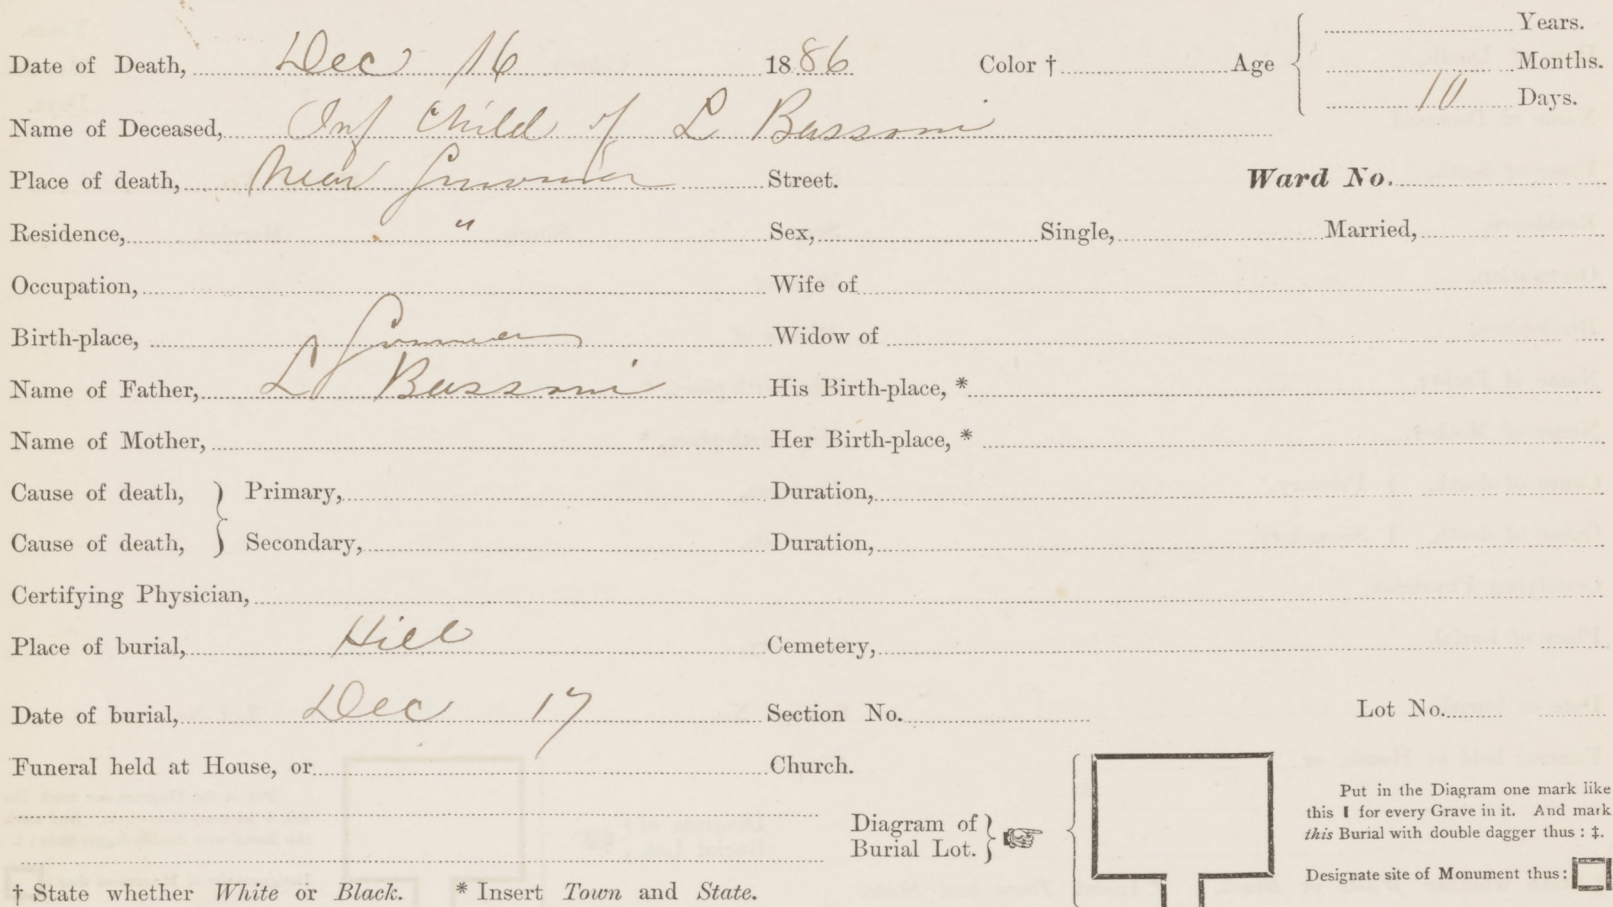 Years.
Date of Death, Dec 16 1886 Color † Age Months.
10 Days.
Name of Deceased, Inf Child of L Bassoni
Place of death, Near Street. Ward No.
Residence, " Sex, Single, Married,
Occupation, Wife of
Birth-place, Widow of
Name of Father, L Bassoni His Birth-place, *
Name of Mother, Her Birth-place, *
Cause of death, } Primary, Duration,
Cause of death, } Secondary, Duration,
Certifying Physician,
Place of burial, Hill Cemetery,
Date of burial, Dec 17 Section No. Lot No.
Funeral held at House, or Church.
Diagram of
Burial Lot.
Put in the Diagram one mark like
this ❙ for every Grave in it. And mark
this Burial with double dagger thus : ‡.
Designate site of Monument thus :
† State whether White or Black. * Insert Town and State.